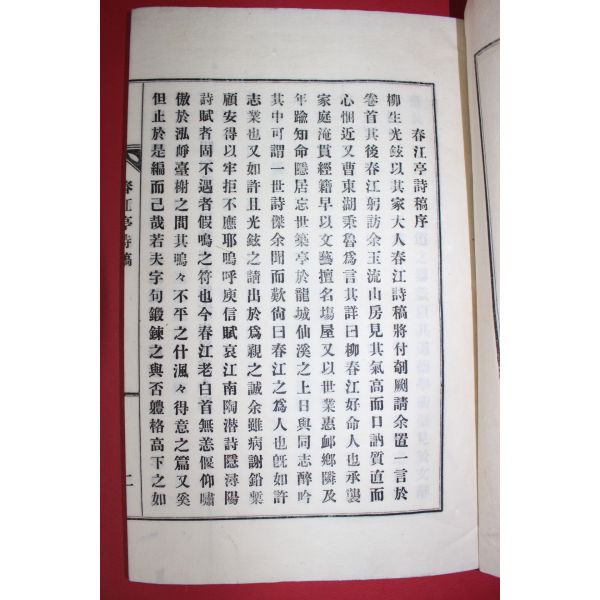 春江亭詩稿序
柳生光鉉以其家大人春江詩稿將付剞劂請余置一言於
卷首其後春江躬訪余玉流山房見其氣高而口訥質直而
心悃近又曹東湖秉魯爲言其詳曰柳春江好命人也承襲
家庭淹貫經籍早以文藝擅名塲屋又以世業惠邮鄕隣及
年踰知命隱居忘世築亭於龍城仙溪之上日與同志醉吟
其中可謂一世詩傑余聞而歎尙曰春江之爲人也旣如許
志業也又如許且光鉉之請出於爲親之誠余雖病謝鉛槧
顧安得以牢拒不應耶嗚呼庾信賦哀江南陶潛詩隱潯陽
詩賦者固不遇者假鳴之符也今春江老白首無恙偃仰嘯
傲於泓崢臺榭之間其鳴々不平之什渢々得意之篇又奚
但止於是編而已哉若夫字句鍛鍊之與否軆格高下之如
春江亭詩稿
二